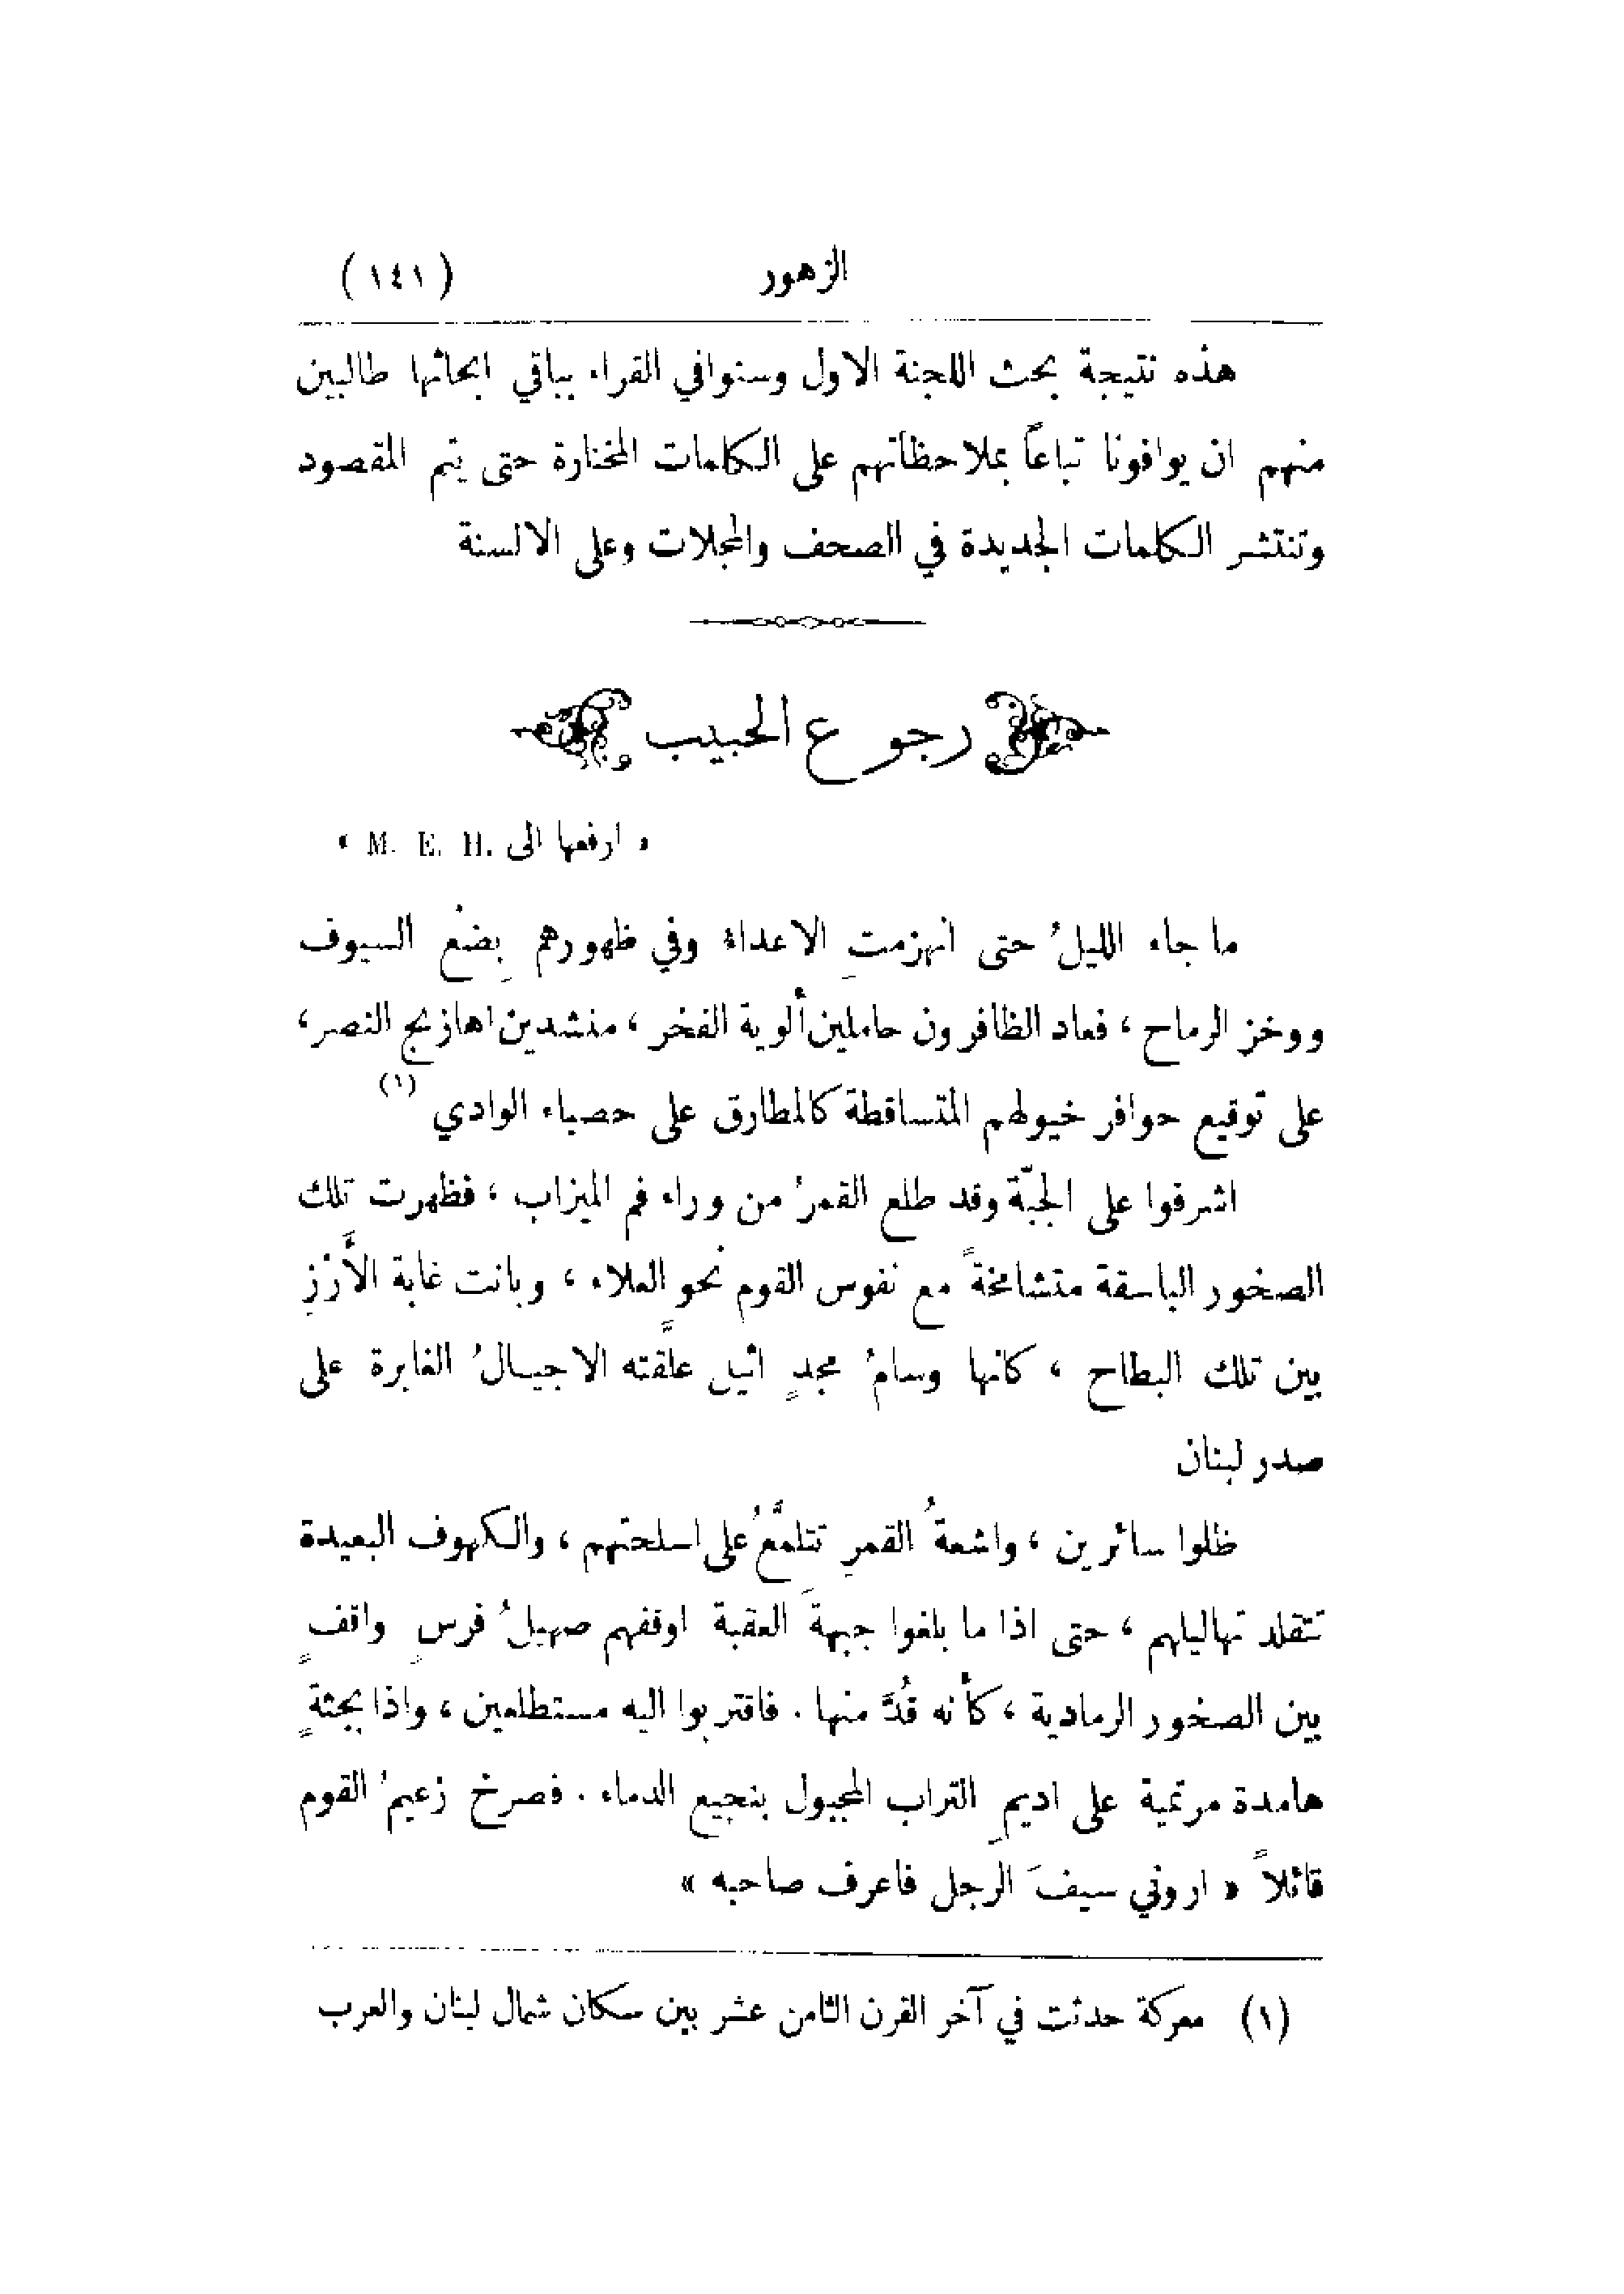 الزهور (١٤١)
هذه نتيجة بحث اللجنة الاول وسنوافي القراء بباقي ابحاثها طالبين
منهم ان يوافونا تباعاً بملاحظاتهم على الكلمات المختارة حتى يتم المقصود
وتنتشر الكلمات الجديدة في الصحف والمجلات وعلى الالسنة
رجوع الحبيب
« ارفعها الى M. E. H. »
ما جاء الليلُ حتى انهزمتِ الاعداء وفي ظهورهم بِضْع السيوف
ووخز الرماح ، فعاد الظافرون حاملين ألوية الفخر ، منشدين اهازيج النصر ،
على توقيع حوافر خيولهم المتساقطة كالمطارق على حصباء الوادي (١)
اشرفوا على الجبّة وقد طلع القمرُ من وراء فم الميزاب ، فظهرت تلك
الصخور الباسقة متشامخةً مع نفوس القوم نحو العلاء ، وبانت غابة الأَرْزِ
بين تلك البطاح ، كانها وسامُ مجدٍ اثيل علَّقته الاجيالُ الغابرة على
صدر لبنان
ظلوا سائرين ، واشعةُ القمرِ تتلمَّعُ على اسلحتهم ، والكهوف البعيدة
تتقلد تهاليلهم ، حتى اذا ما بلغوا جبهةَ العقبة اوقفهم صهيلُ فرسٍ واقفٍ
بين الصخور الرمادية ، كأنه قُدَّ منها . فاقتربوا اليه مستطلعين ، واذا بجثةٍ
هامدة مرتمية على اديمِ التراب المجبول بنجيع الدماء . فصرخ زعيمُ القوم
قائلاً « اروني سيفَ الرجل فاعرف صاحبه »
(١) معركة حدثت في آخر القرن الثامن عشر بين سكان شمال لبنان والعرب